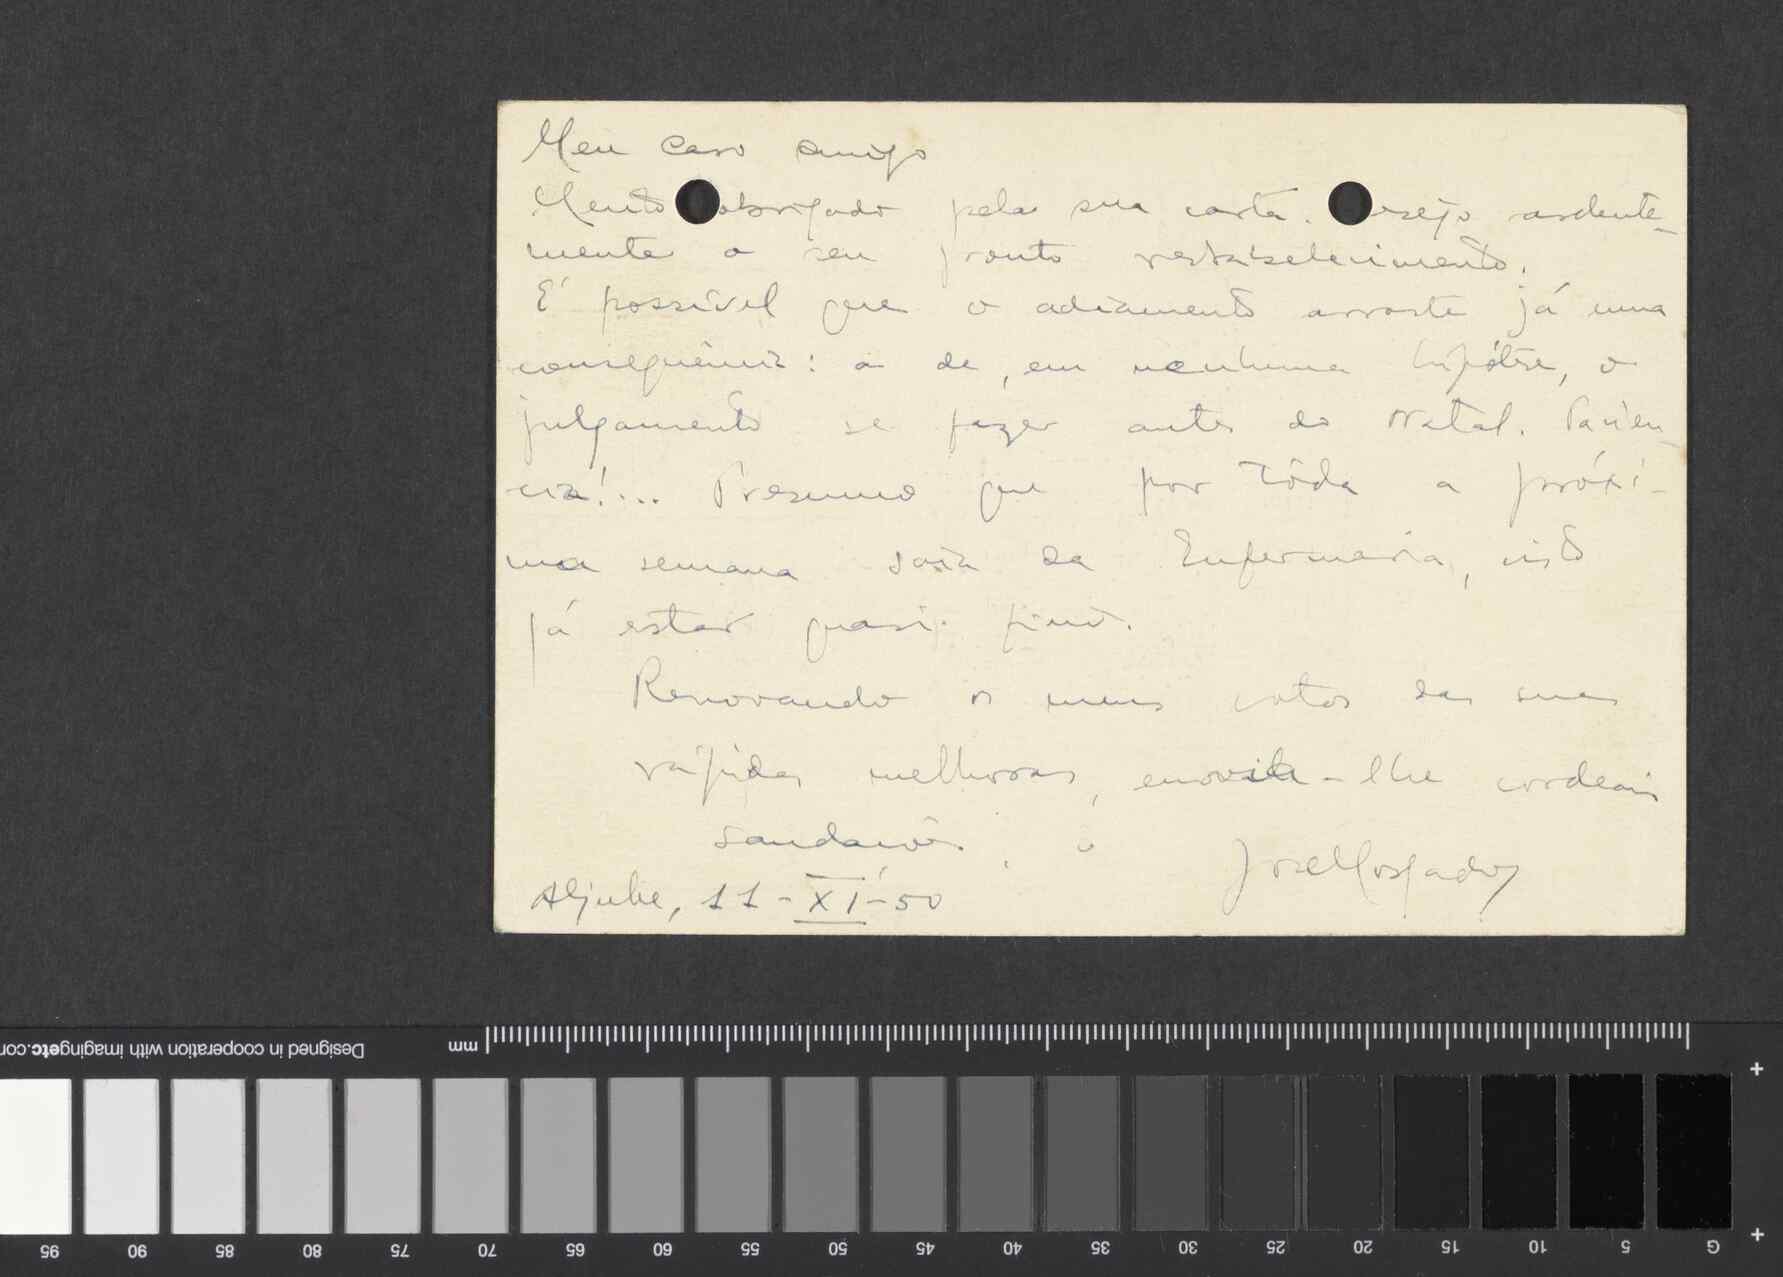 Meu caro amigo
Muito obrigado pela sua carta. Desejo ardente-
mente o seu pronto restabelecimento.
É possível que o adiamento arraste já uma
consequência: a de, em nenhuma hipótese, o
julgamento se fazer antes do Natal. Paciên-
cia!... Presumo que por tôda a próxi-
ma semana saia da Enfermaria, visto
já estar quasi fino.
Renovando os meus votos das suas
rápidas melhoras, envia-lhe cordeais
saudações, o José Morgado
Aljube, 11-XI-50
mm Designed in cooperation with imagingetc.com
95 90 85 80 75 70 65 60 55 50 45 40 35 30 25 20 15 10 5 G